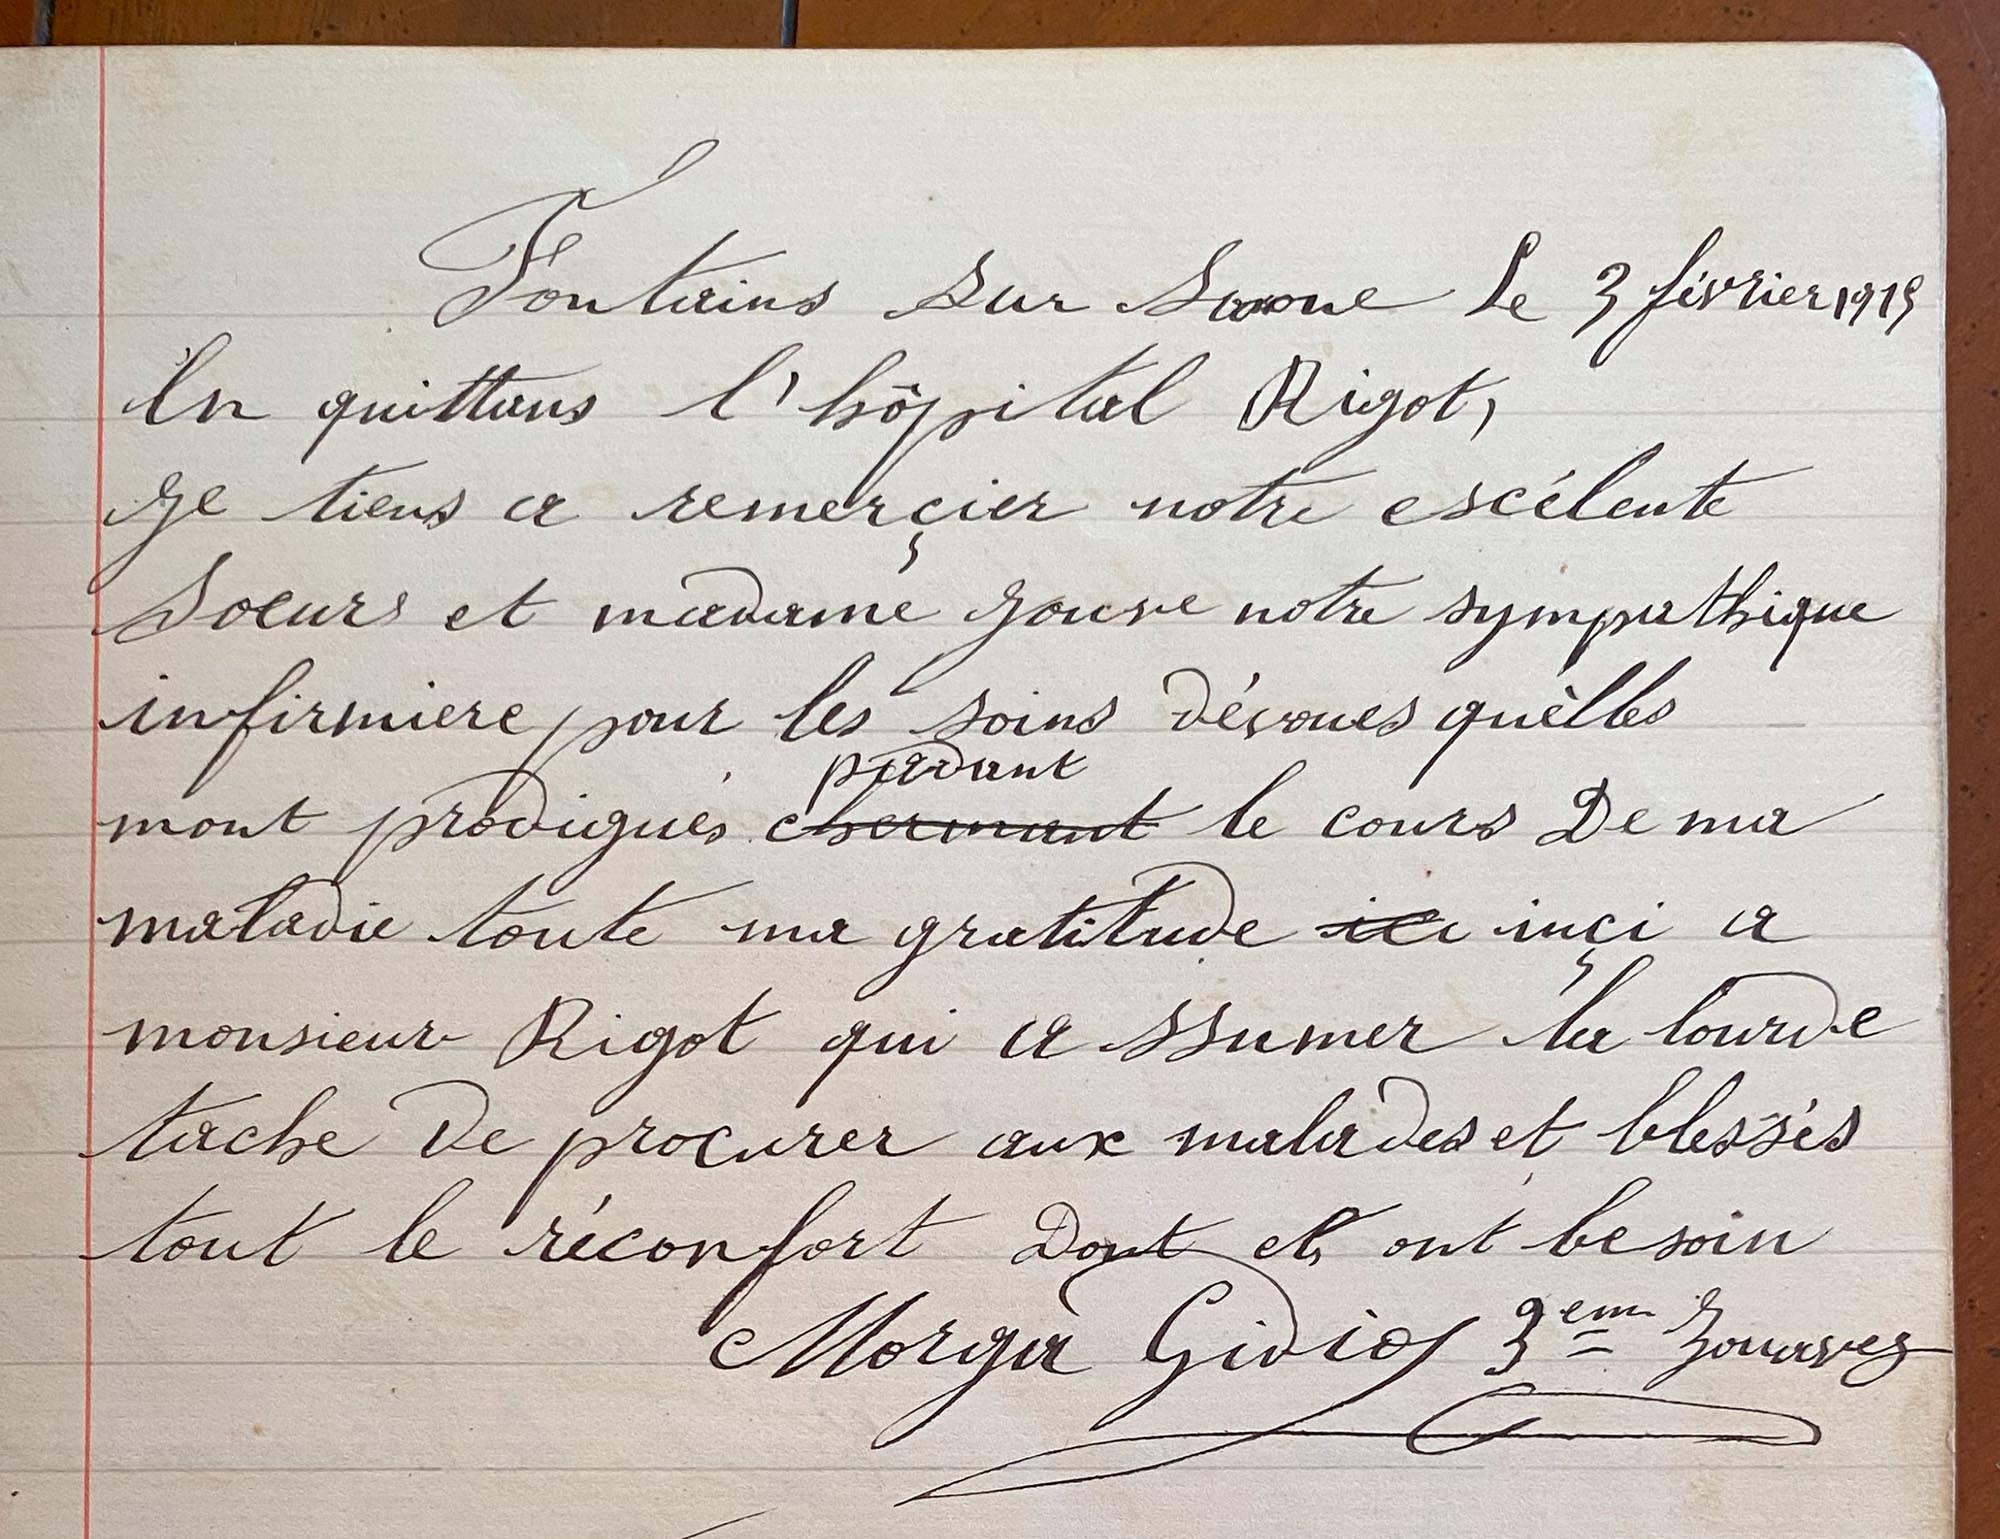 Fontains sur Saone le 3 février 1915
En quittans l'hôpital Rigot,
Je tiens a remerçier notre escélente
Soeurs et madame Jouve notre sympathique
infirmiere pour les soins dévoues quèlles
mont prodigués chermant le cours De ma
pendant
maladie toute ma gratitude ici inçi a
monsieur Rigot qui a ssumer la lourde
tache de procurer aux malades et blessés
tout le réconfort Dont ils ont besoin
Morga 3eme Zouaves